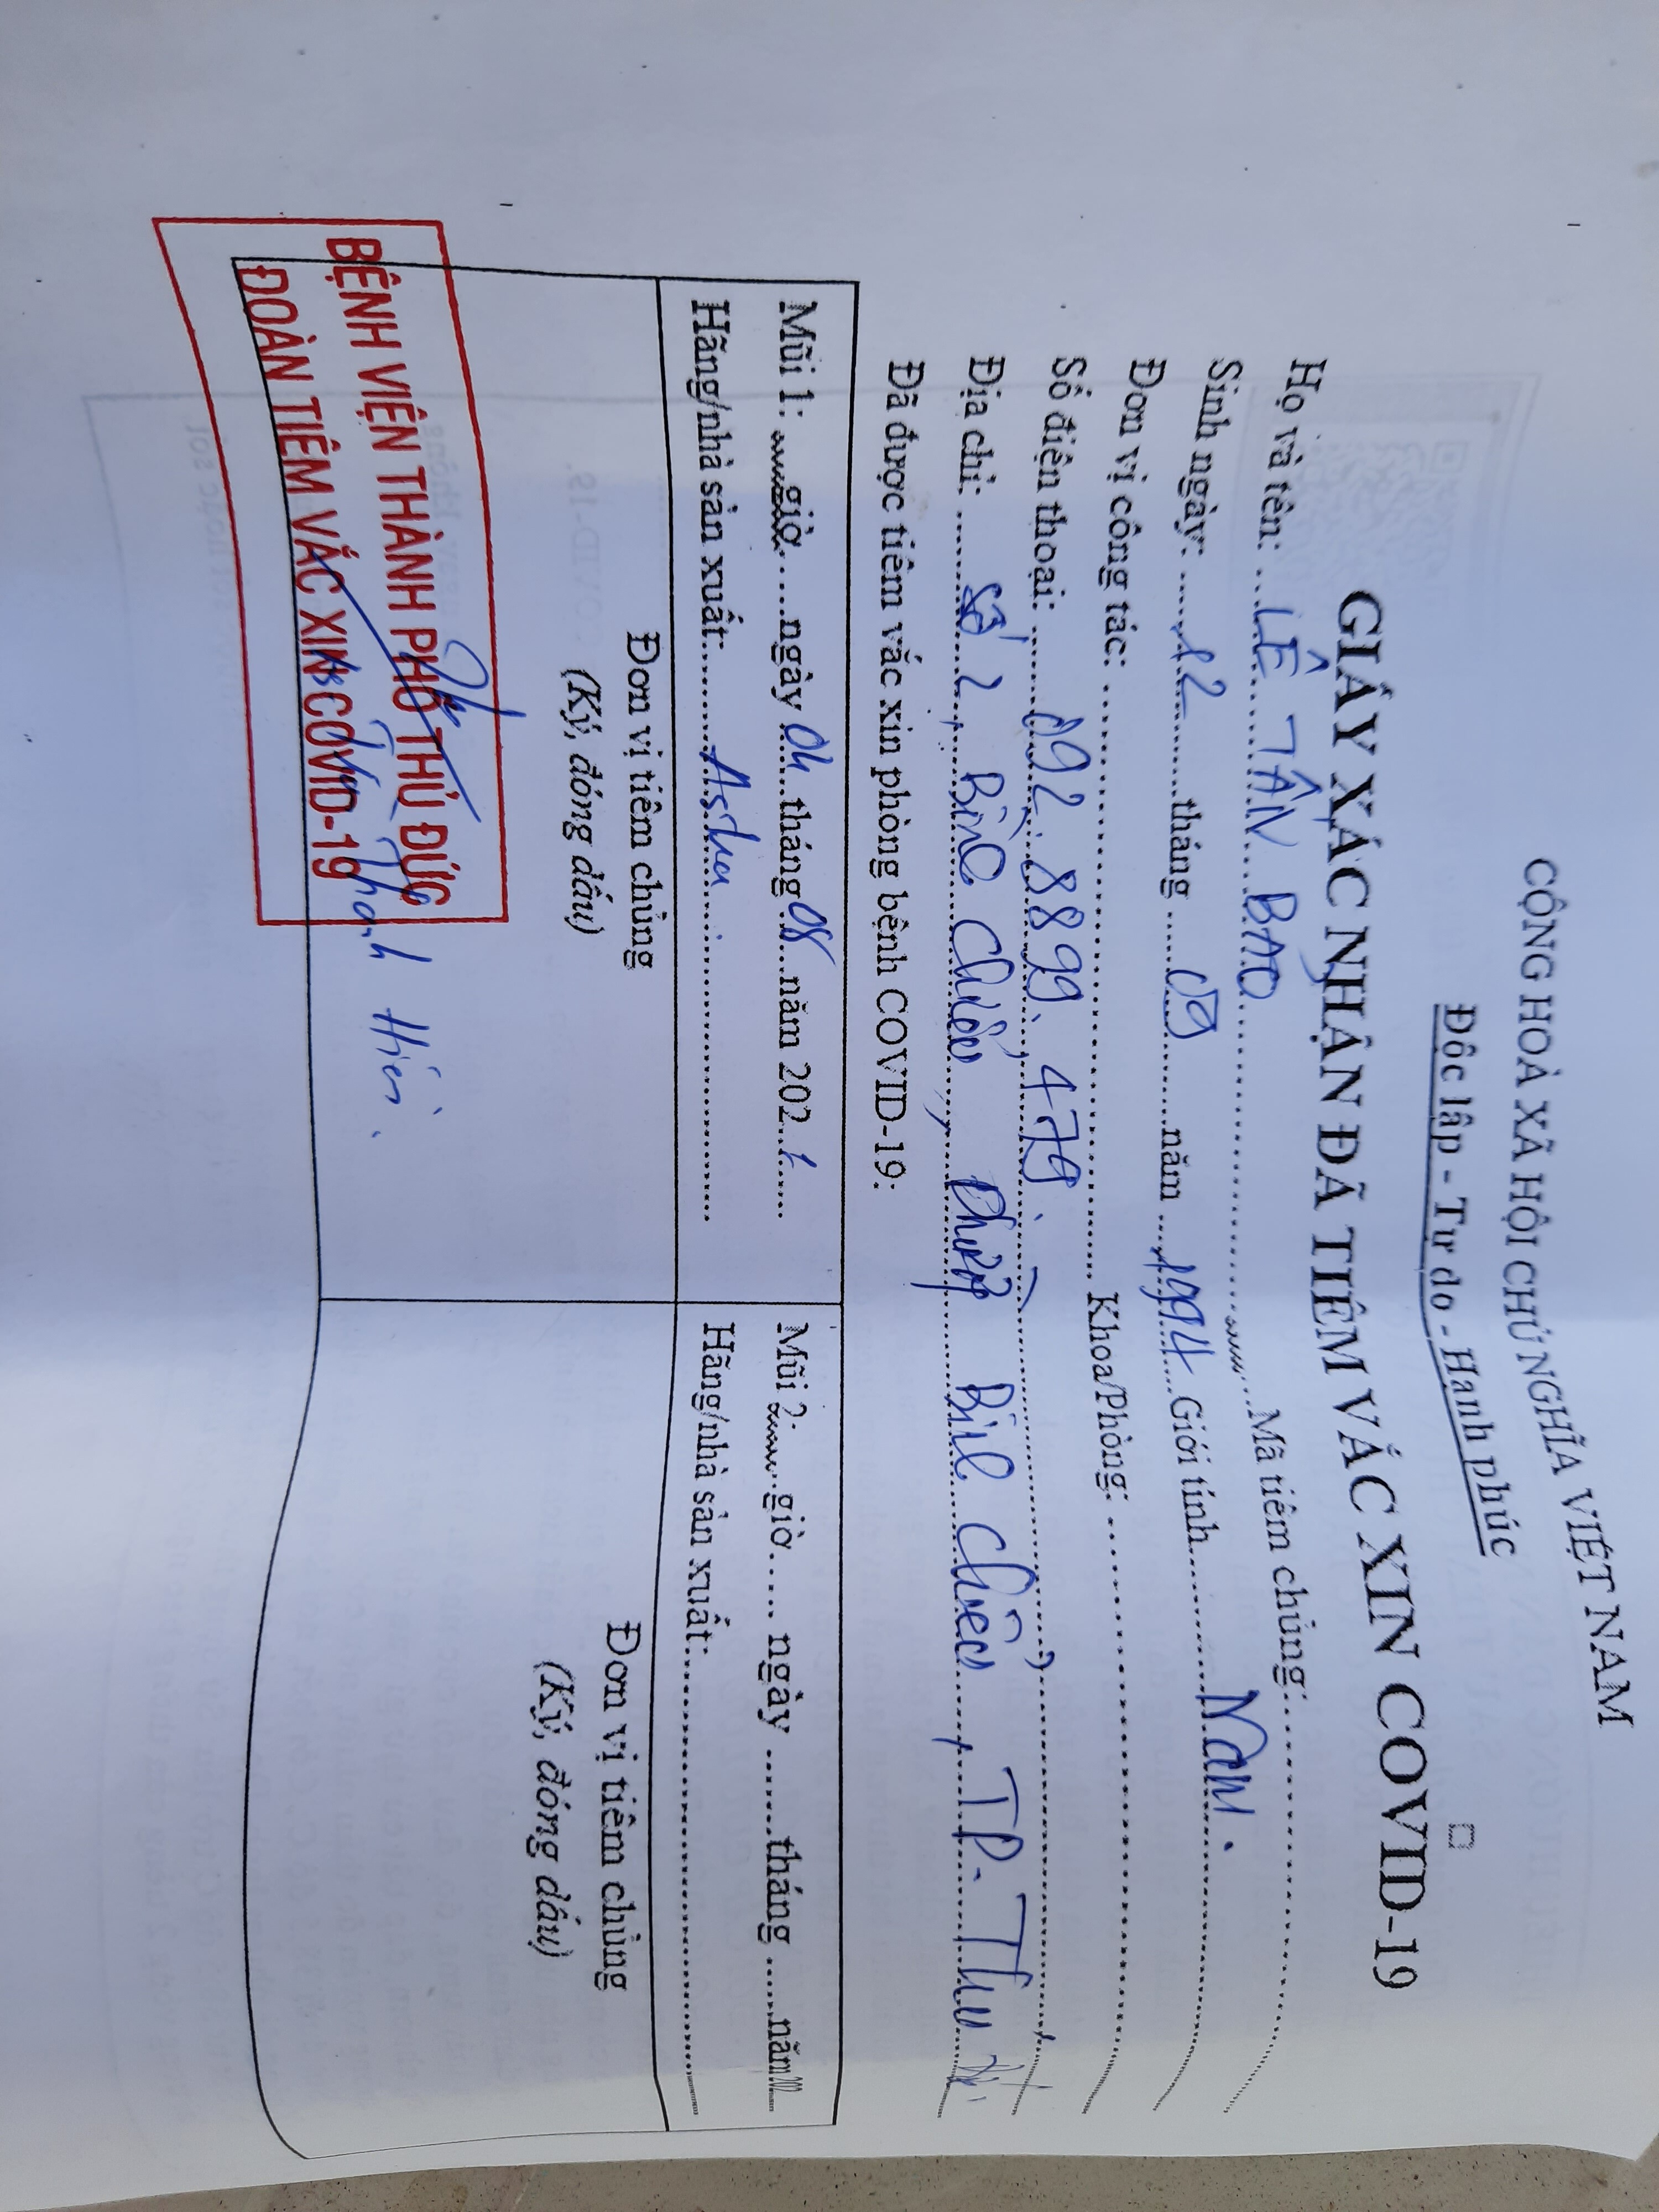 CỘNG HOÀ XÃ HỘI CHỦ NGHĨA VIỆT NAM
Độc lập - Tự do - Hạnh phúc
GIẤY XÁC NHẬN ĐÃ TIÊM VẮC XIN COVID-19
Họ và tên: LÊ TẤN BẢO Mã tiêm chủng:
Sinh ngày: 12 tháng 09 năm 1994 Giới tính Nam.
Đơn vị công tác: Khoa/Phòng:
Số điện thoại: 092.8899.479.
Địa chỉ: số 2, Bình Chiểu, Phường Bình Chiểu, TP. Thủ
Đã được tiêm vắc xin phòng bệnh COVID-19:
Mũi 1: giờ ngày 04 tháng 08 năm 2021
Hãng/nhà sản xuất: Astra
Đơn vị tiêm chủng
(Ký, đóng dấu)
BỆNH VIỆN THÀNH PHỐ THỦ ĐỨC
ĐOÀN TIÊM VẮC XIN COVID-19
Hiền
Mũi 2: giờ ngày tháng năm 202
Hãng/nhà sản xuất:
Đơn vị tiêm chủng
(Ký, đóng dấu)